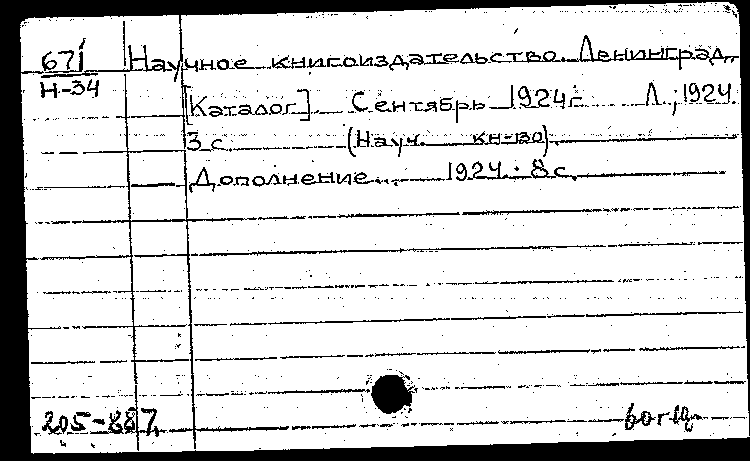 671 Научное книгоиздательство. Ленинград.
Н-34
[Каталог]. Сентябрь 1924г. Л., 1924
3 с. (Науч. кн-во).
Дополнение... 1924. 8 с.
205-887